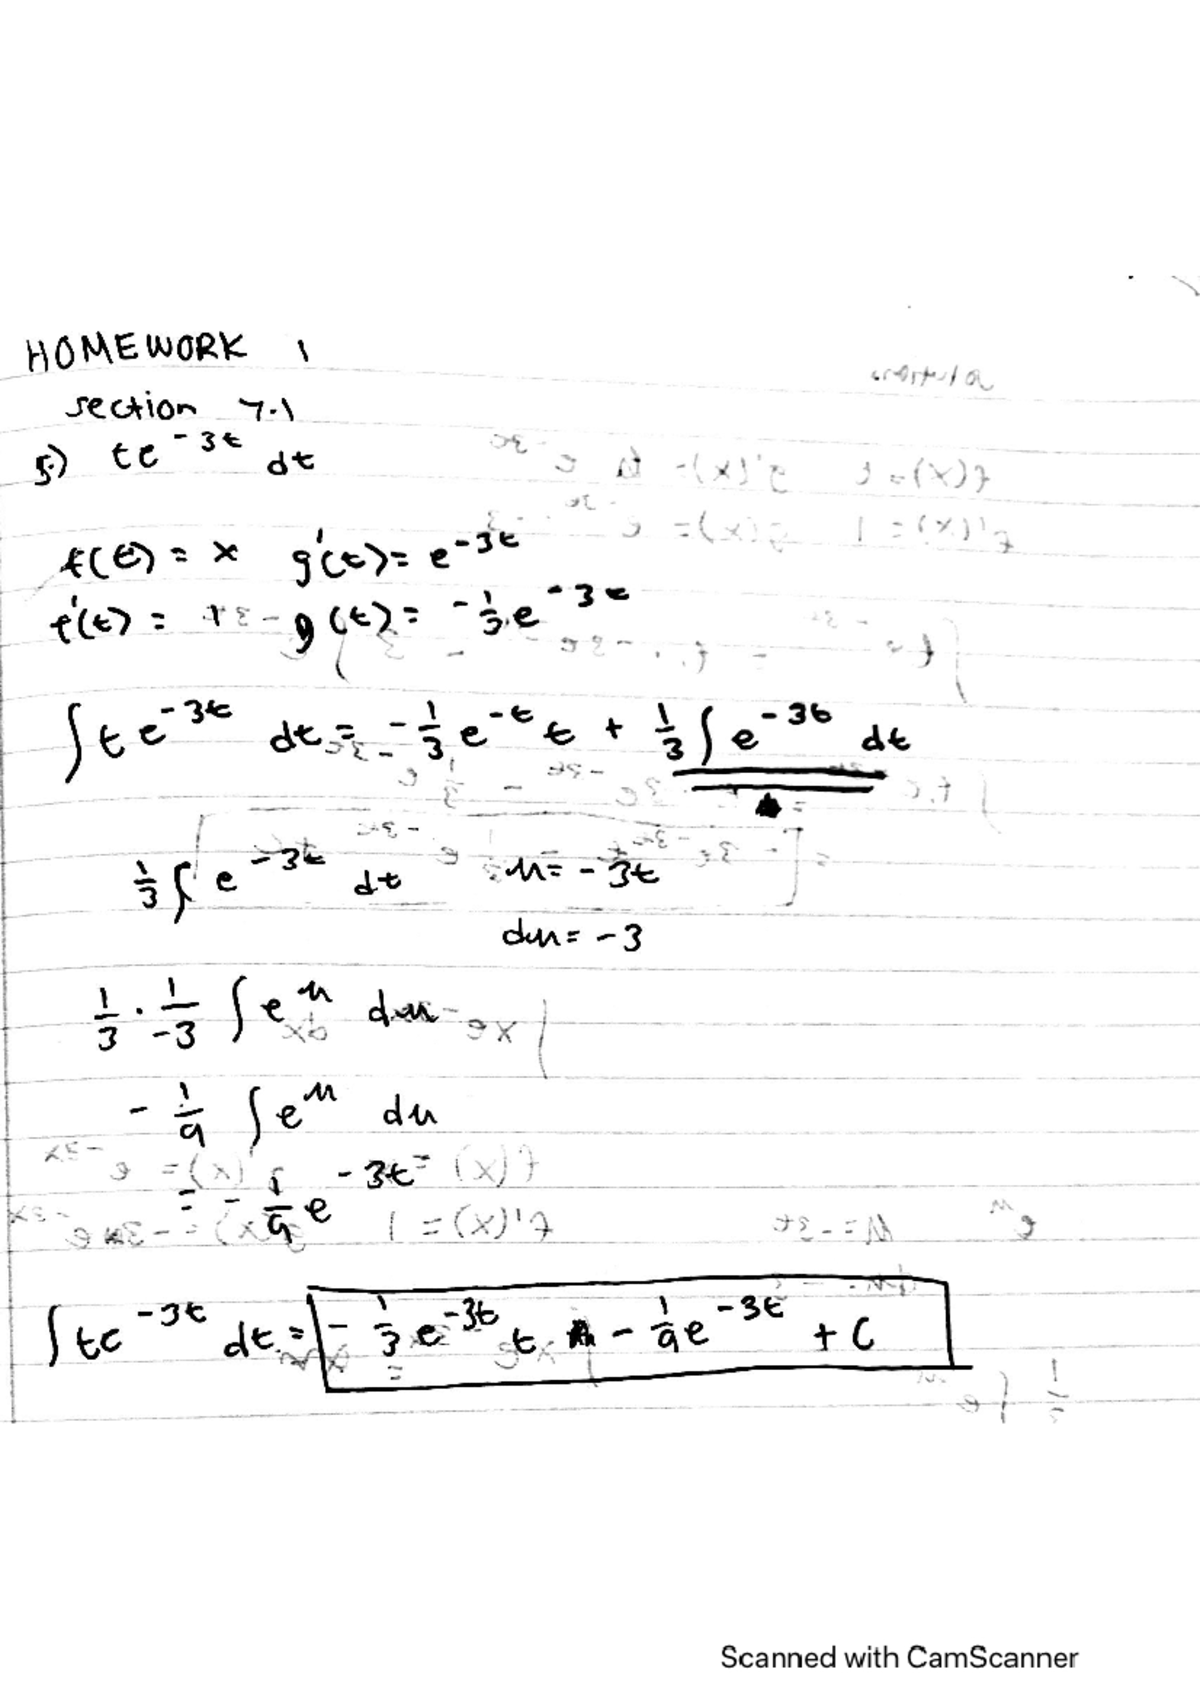 HOMEWORK 1
section 7.1
5.) te^{-3t} dt
f(t) = x   g'(t) = e^{-3t}
f'(t) =   g(t) = -\frac{1}{3}e^{-3t}
∫te^{-3t} dt = -\frac{1}{3}e^{-t}t + \frac{1}{3}∫e^{-3t} dt
\frac{1}{3}∫e^{-3t} dt   u = -3t
du = -3
\frac{1}{3} · \frac{1}{-3} ∫e^{u} du
-\frac{1}{9} ∫e^{u} du
= -\frac{1}{9}e^{-3t}
∫te^{-3t} dt = -\frac{1}{3}e^{-3t}t - \frac{1}{9}e^{-3t} + C
Scanned with CamScanner